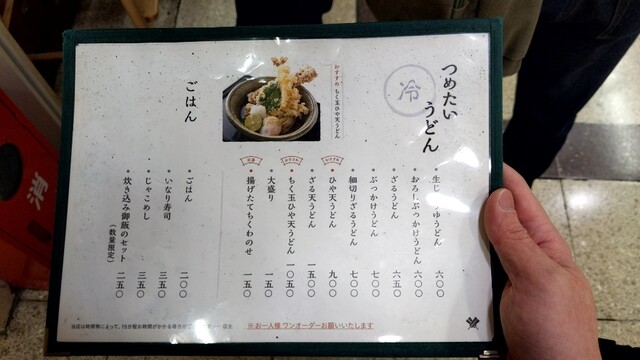 つめたい
うどん
冷
生じょうゆうどん 六〇〇
おろしぶっかけうどん 六〇〇
ざるうどん 六五〇
ぶっかけうどん 七〇〇
細切りざるうどん 七〇〇
おすすめ
ひや天うどん 九〇〇
ざる天うどん 一五〇〇
おすすめ
ちく玉ひや天うどん 一〇五〇
大盛り 一五〇
揚げたてちくわのせ 一五〇
おすすめの ちく玉ひや天うどん
ごはん
ごはん 二〇〇
いなり寿司 三五〇
じゃこめし 三五〇
炊き込み御飯のセット 二五〇
(数量限定)
当店は時間帯によって、15分程お時間がかかる場合が 店主
※ お一人様 ワンオーダーお願いいたします
消